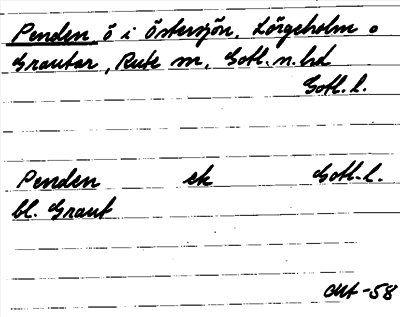 Penden ö i Östersjön. Lörgeholm o
Grautar, Rute sn, Gotl. n. hd
Gotl. l.
Penden ek Gotl. l.
bl. Graut
-58